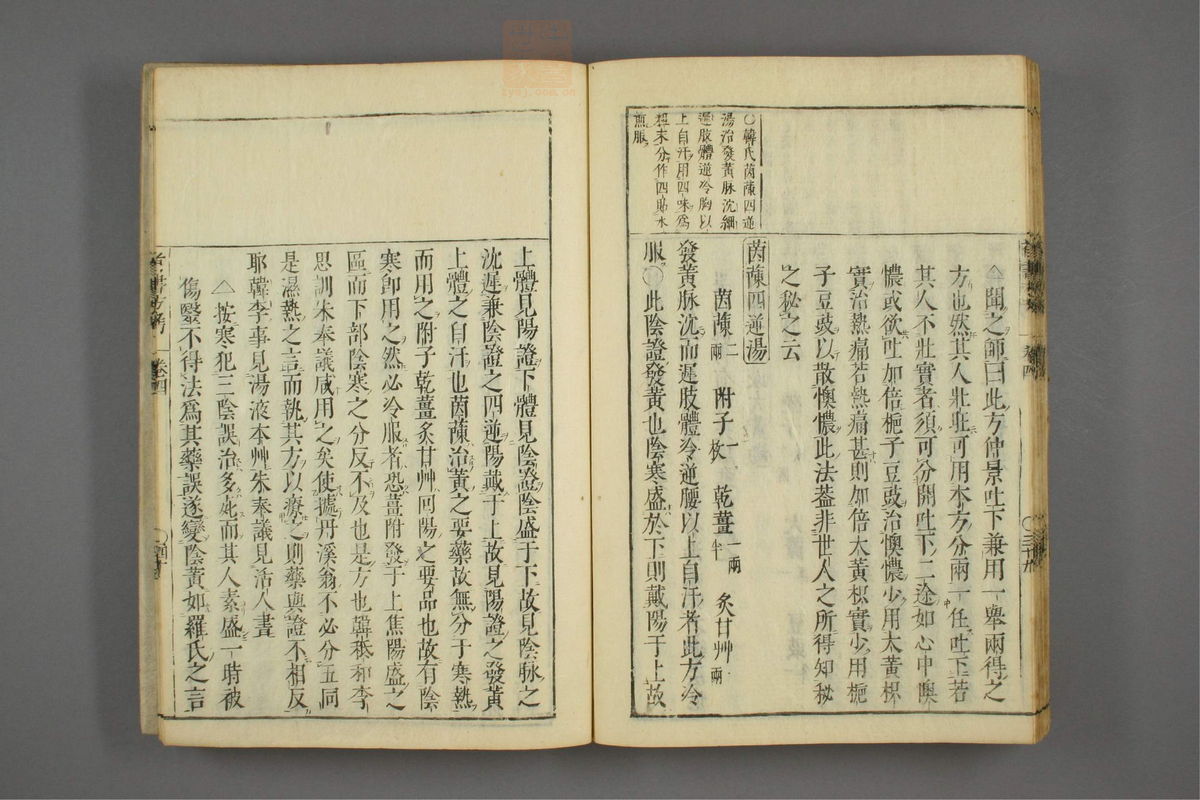 ○韓氏茵蔯四逆
湯治發黃脉沈細
遲肢體逆冷腰以
上自汗用四味為
麁末分作四貼水
煎服
△聞之師曰此方仲景吐下兼用一舉兩得之
方也然其人壯駐可用本方分兩一任吐下若
其人不壯實者須可分開吐下二途如心中懊
憹或欲吐加倍梔子豆豉治懊憹少用大黃枳
實治熱痛若熱痛甚則加倍大黃枳實少用梔
子豆豉以散懊憹此法葢非世人之所得知秘
之秘之云
茵蔯四逆湯
茵蔯二兩 附子一枚 乾薑一兩半 炙甘艸一兩
發黃脉沈而遲肢體冷逆腰以上自汗者此方冷
服○此陰證發黃也陰寒盛於下則戴陽于上故
上體見陽證下體見陰證陰盛于下故見陰脉之
沈遲兼陰證之四逆陽戴于上故見陽證之發黃
上體之自汗也茵蔯治黃之要藥故無分于寒熱
而用之附子乾薑炙甘艸回陽之要品也故有陰
寒卽用之然必冷服者恐薑附發于上焦陽盛之
區而下部陰寒之分反不及也是方也韓秪和李
思訓朱奉議咸用之矣使據丹溪翁不必分五同
是濕熱之言而執其方以療之則藥與證不相反
耶韓李事見湯液本艸朱奉議見活人書
△按寒犯三陰誤治多死而其人素盛一時被
傷醫不得法為其藥誤遂變陰黃如羅氏之言
卷四